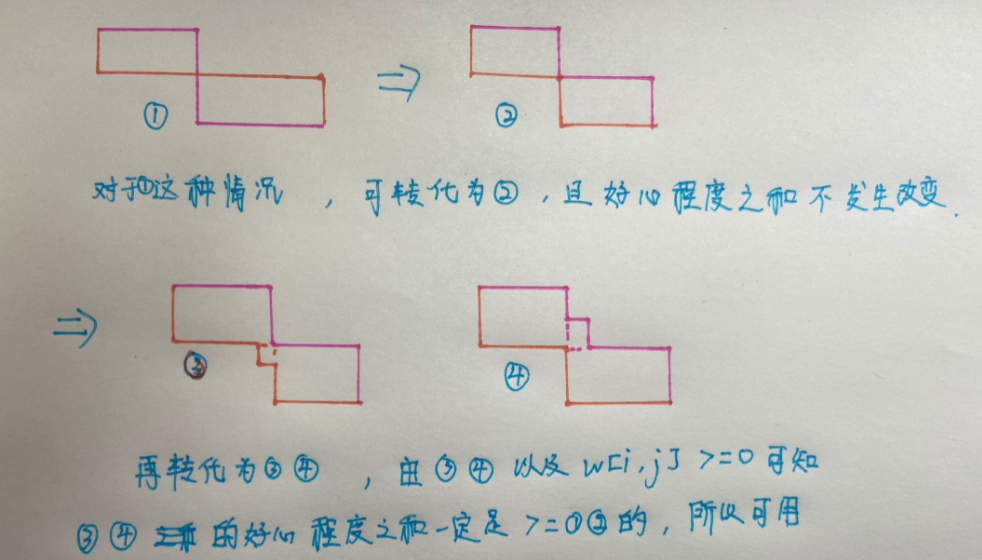 ① ⇒ ②
对于①这种情况，可转化为②，且好心程度之和不发生改变.
⇒ ③ ④
再转化为③④，由③④以及w[i,j]>=0可知
③④的好心程度之和一定是>=①②的，所以可用